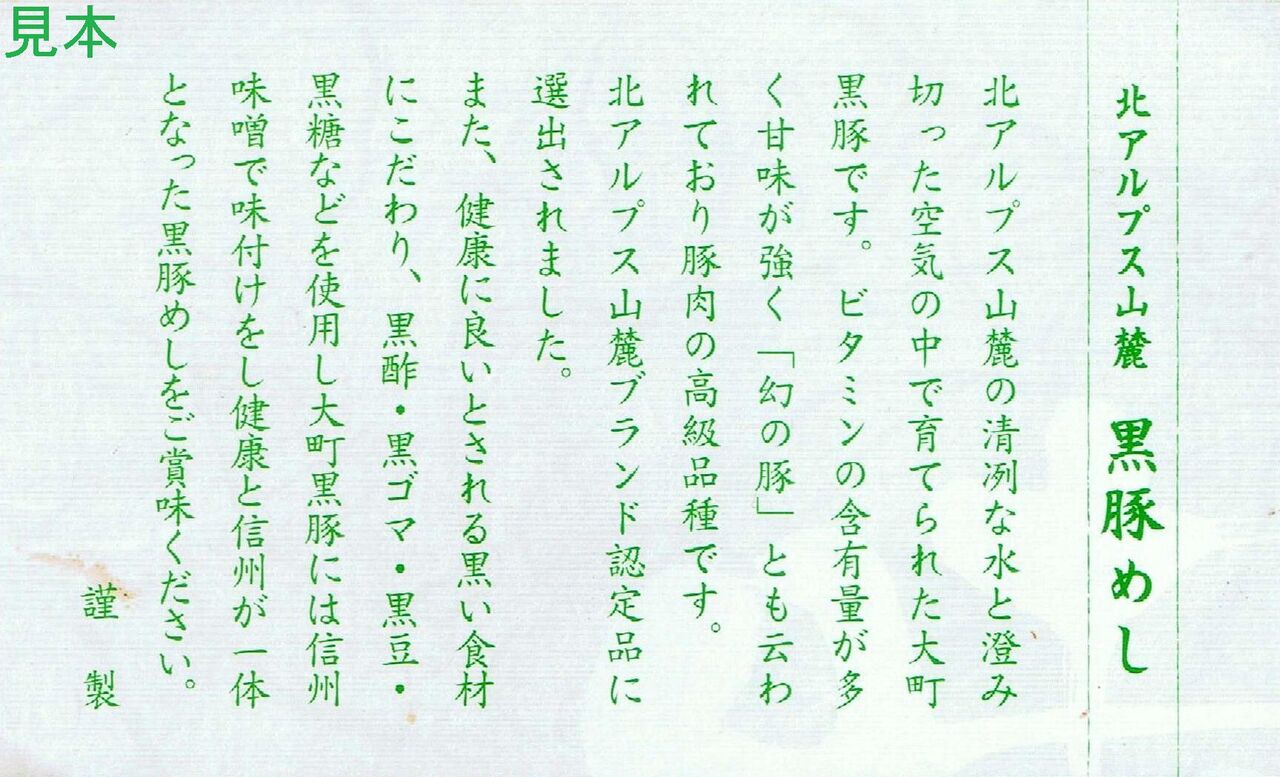 見本
北アルプス山麓 黒豚めし
北アルプス山麓の清冽な水と澄み
切った空気の中で育てられた大町
黒豚です。ビタミンの含有量が多
く甘味が強く「幻の豚」とも云わ
れており豚肉の高級品種です。
北アルプス山麓ブランド認定品に
選出されました。
また、健康に良いとされる黒い食材
にこだわり、黒酢・黒ゴマ・黒豆・
黒糖などを使用し大町黒豚には信州
味噌で味付けをし健康と信州が一体
となった黒豚めしをご賞味ください。
謹製